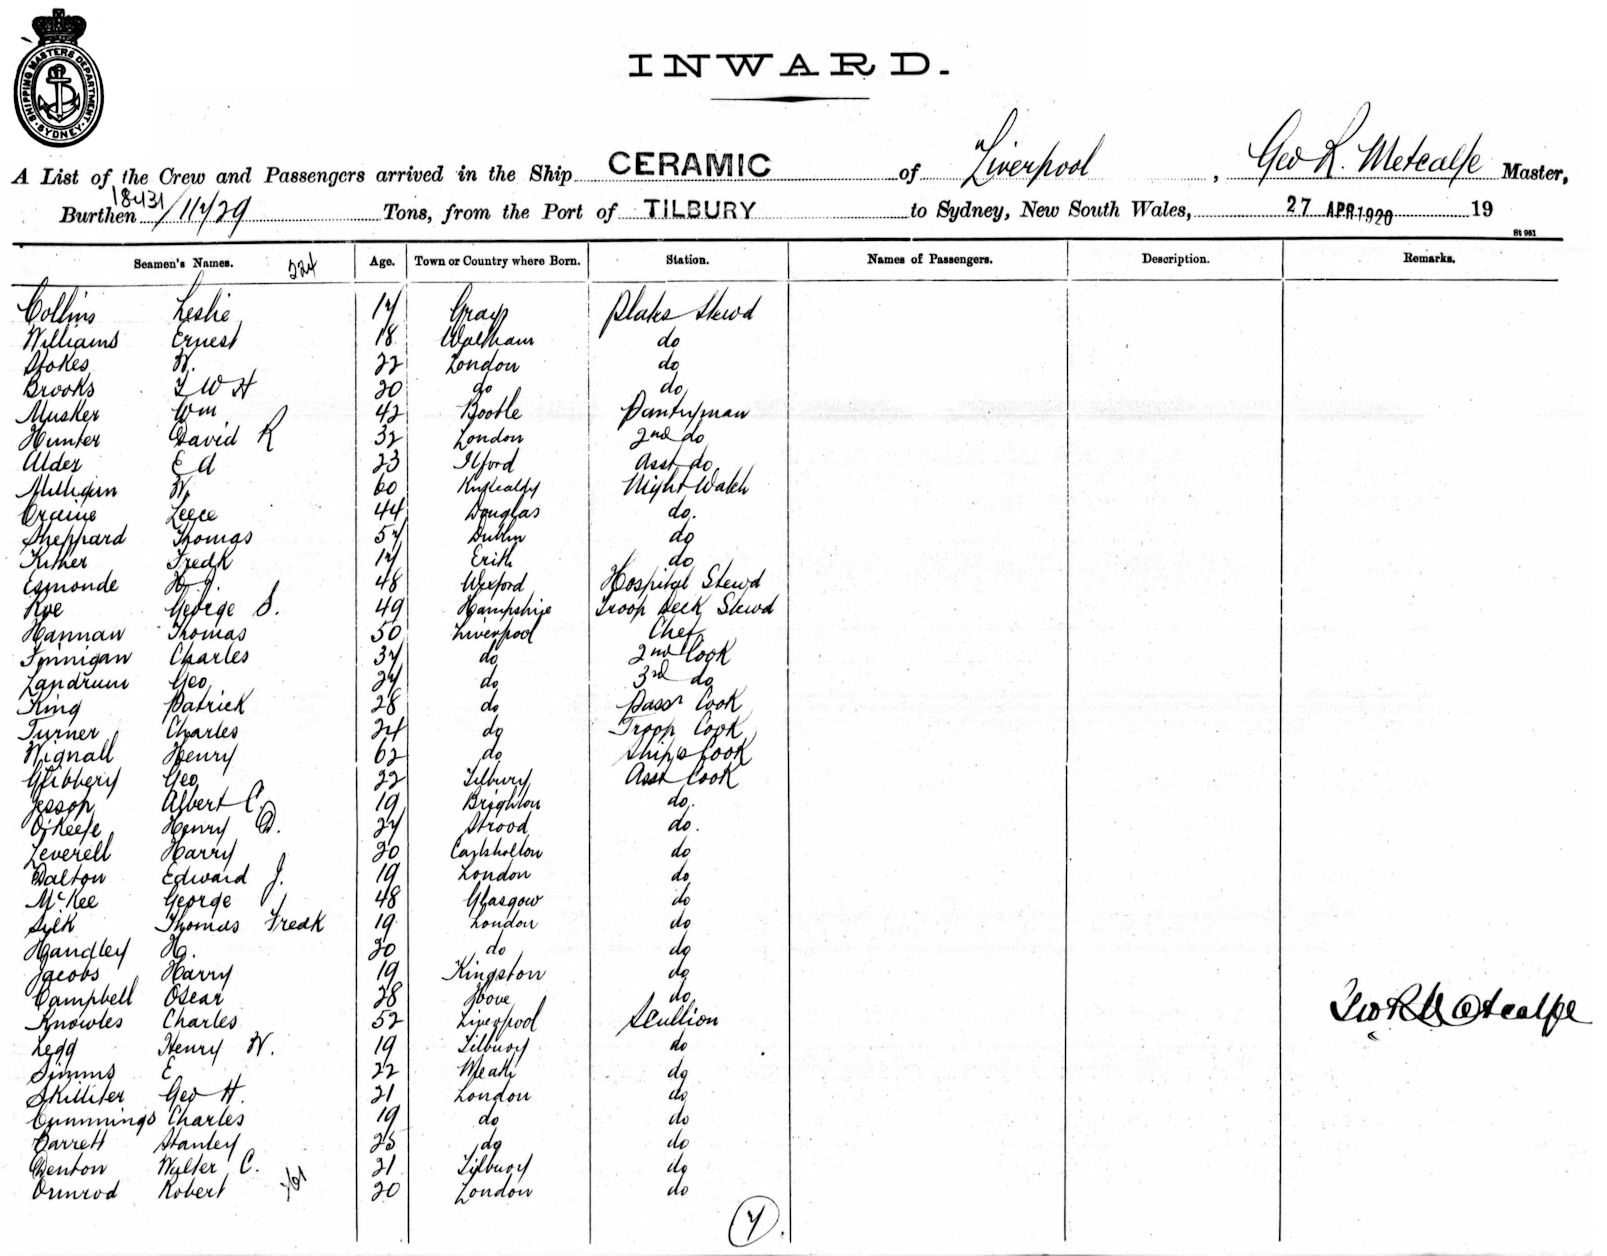 SHIPPING MASTERS DEPARTMENT. SYDNEY.
INWARD.
A List of the Crew and Passengers arrived in the Ship CERAMIC of Liverpool, Geo R. Metcalfe Master,
18431
Burthen /11729 Tons, from the Port of TILBURY to Sydney, New South Wales, 27 APR 1920 19
St 961
Seamen's Names. 224 Age. Town or Country where Born. Station. Names of Passengers. Description. Remarks.
Collins Leslie 17 Grays Plates Stewd
Williams Ernest 18 Waltham do
Stokes W. 22 London do
Brooks F W H 20 do do
Musker Wm 42 Bootle Pantryman
Hunter David R 32 London 2nd do
Alder E A 23 Ilford Asst do
Milligan W. 60 Kirkcaldy Night Watch
Craine Leece 44 Douglas do.
Sheppard Thomas 57 Dublin do
Kither Fredk 17 Erith do
Esmonde H. J. 48 Wexford Hospital Stewd
Roe George S. 49 Hampshire Troop Deck Stewd
Hannan Thomas 50 Liverpool Chef
Finnigan Charles 37 do 2nd Cook
Landrum Geo 27 do 3rd do
King Patrick 28 do Passr Cook
Turner Charles 24 do Troop Cook
Wignall Henry 62 do Ship's Cook
Glibbery Geo 22 Tilbury Asst Cook
Jessop Albert C. 19 Brighton do.
O'Keefe Henry D. 27 Strood do.
Leverell Harry 20 Carlshalton do
Dalton Edward J. 19 London do
McKee George 48 Glasgow do
Silk Thomas Fredk 19 London do
Handley H. 20 do do
Jacobs Harry 19 Kingston do
Campbell Oscar 28 Hove do
Knowles Charles 52 Liverpool Scullion
Geo R Metcalfe
Legg Henry W. 19 Tilbury do
Simms E 22 Meath do
Skilliter Geo H. 21 London do
Cummings Charles 19 do do
Barrett Stanley 25 do do
Denton Walter C. 21 Tilbury do
Ormrod Robert 20 London do
7